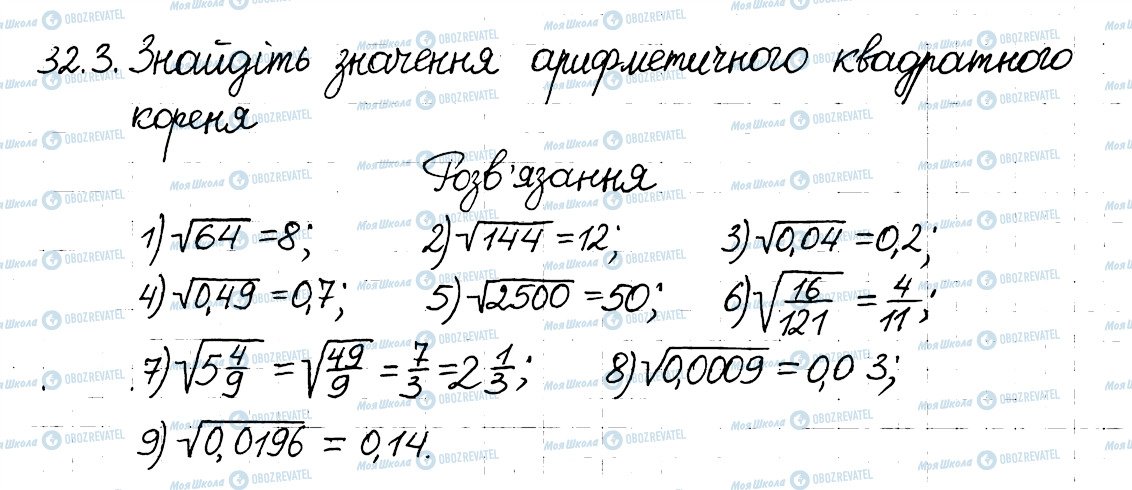 32.3. Знайдіть значення арифметичного квадратного
кореня
Розв'язання
1) √64 = 8; 2) √144 = 12; 3) √0,04 = 0,2;
4) √0,49 = 0,7; 5) √2500 = 50; 6) √(16/121) = 4/11;
7) √(5 4/9) = √(49/9) = 7/3 = 2 1/3; 8) √0,0009 = 0,03;
9) √0,0196 = 0,14.